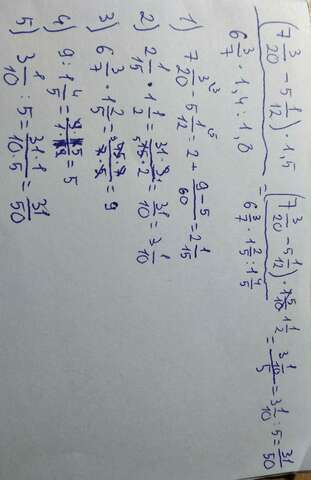 (7 3/20 − 5 1/12) · 1,5 / 6 3/7 · 1,4 : 1,8 = (7 3/20 − 5 1/12) · 1 1/2 / 6 3/7 · 1 2/5 : 1 4/5 = 3 1/10 / 5 = 3 1/10 : 5 = 31/50
1) 7 3/20 − 5 1/12 = 2 + (9 − 5)/60 = 2 1/15
2) 2 1/15 · 1 1/2 = 31 · 3/15 · 2 = 31/10 = 3 1/10
3) 6 3/7 · 1 2/5 = 45 · 7/7 · 5 = 9
4) 9 : 1 4/5 = 9 · 5/9 = 5
5) 3 1/10 : 5 = 31 · 1/10 · 5 = 31/50